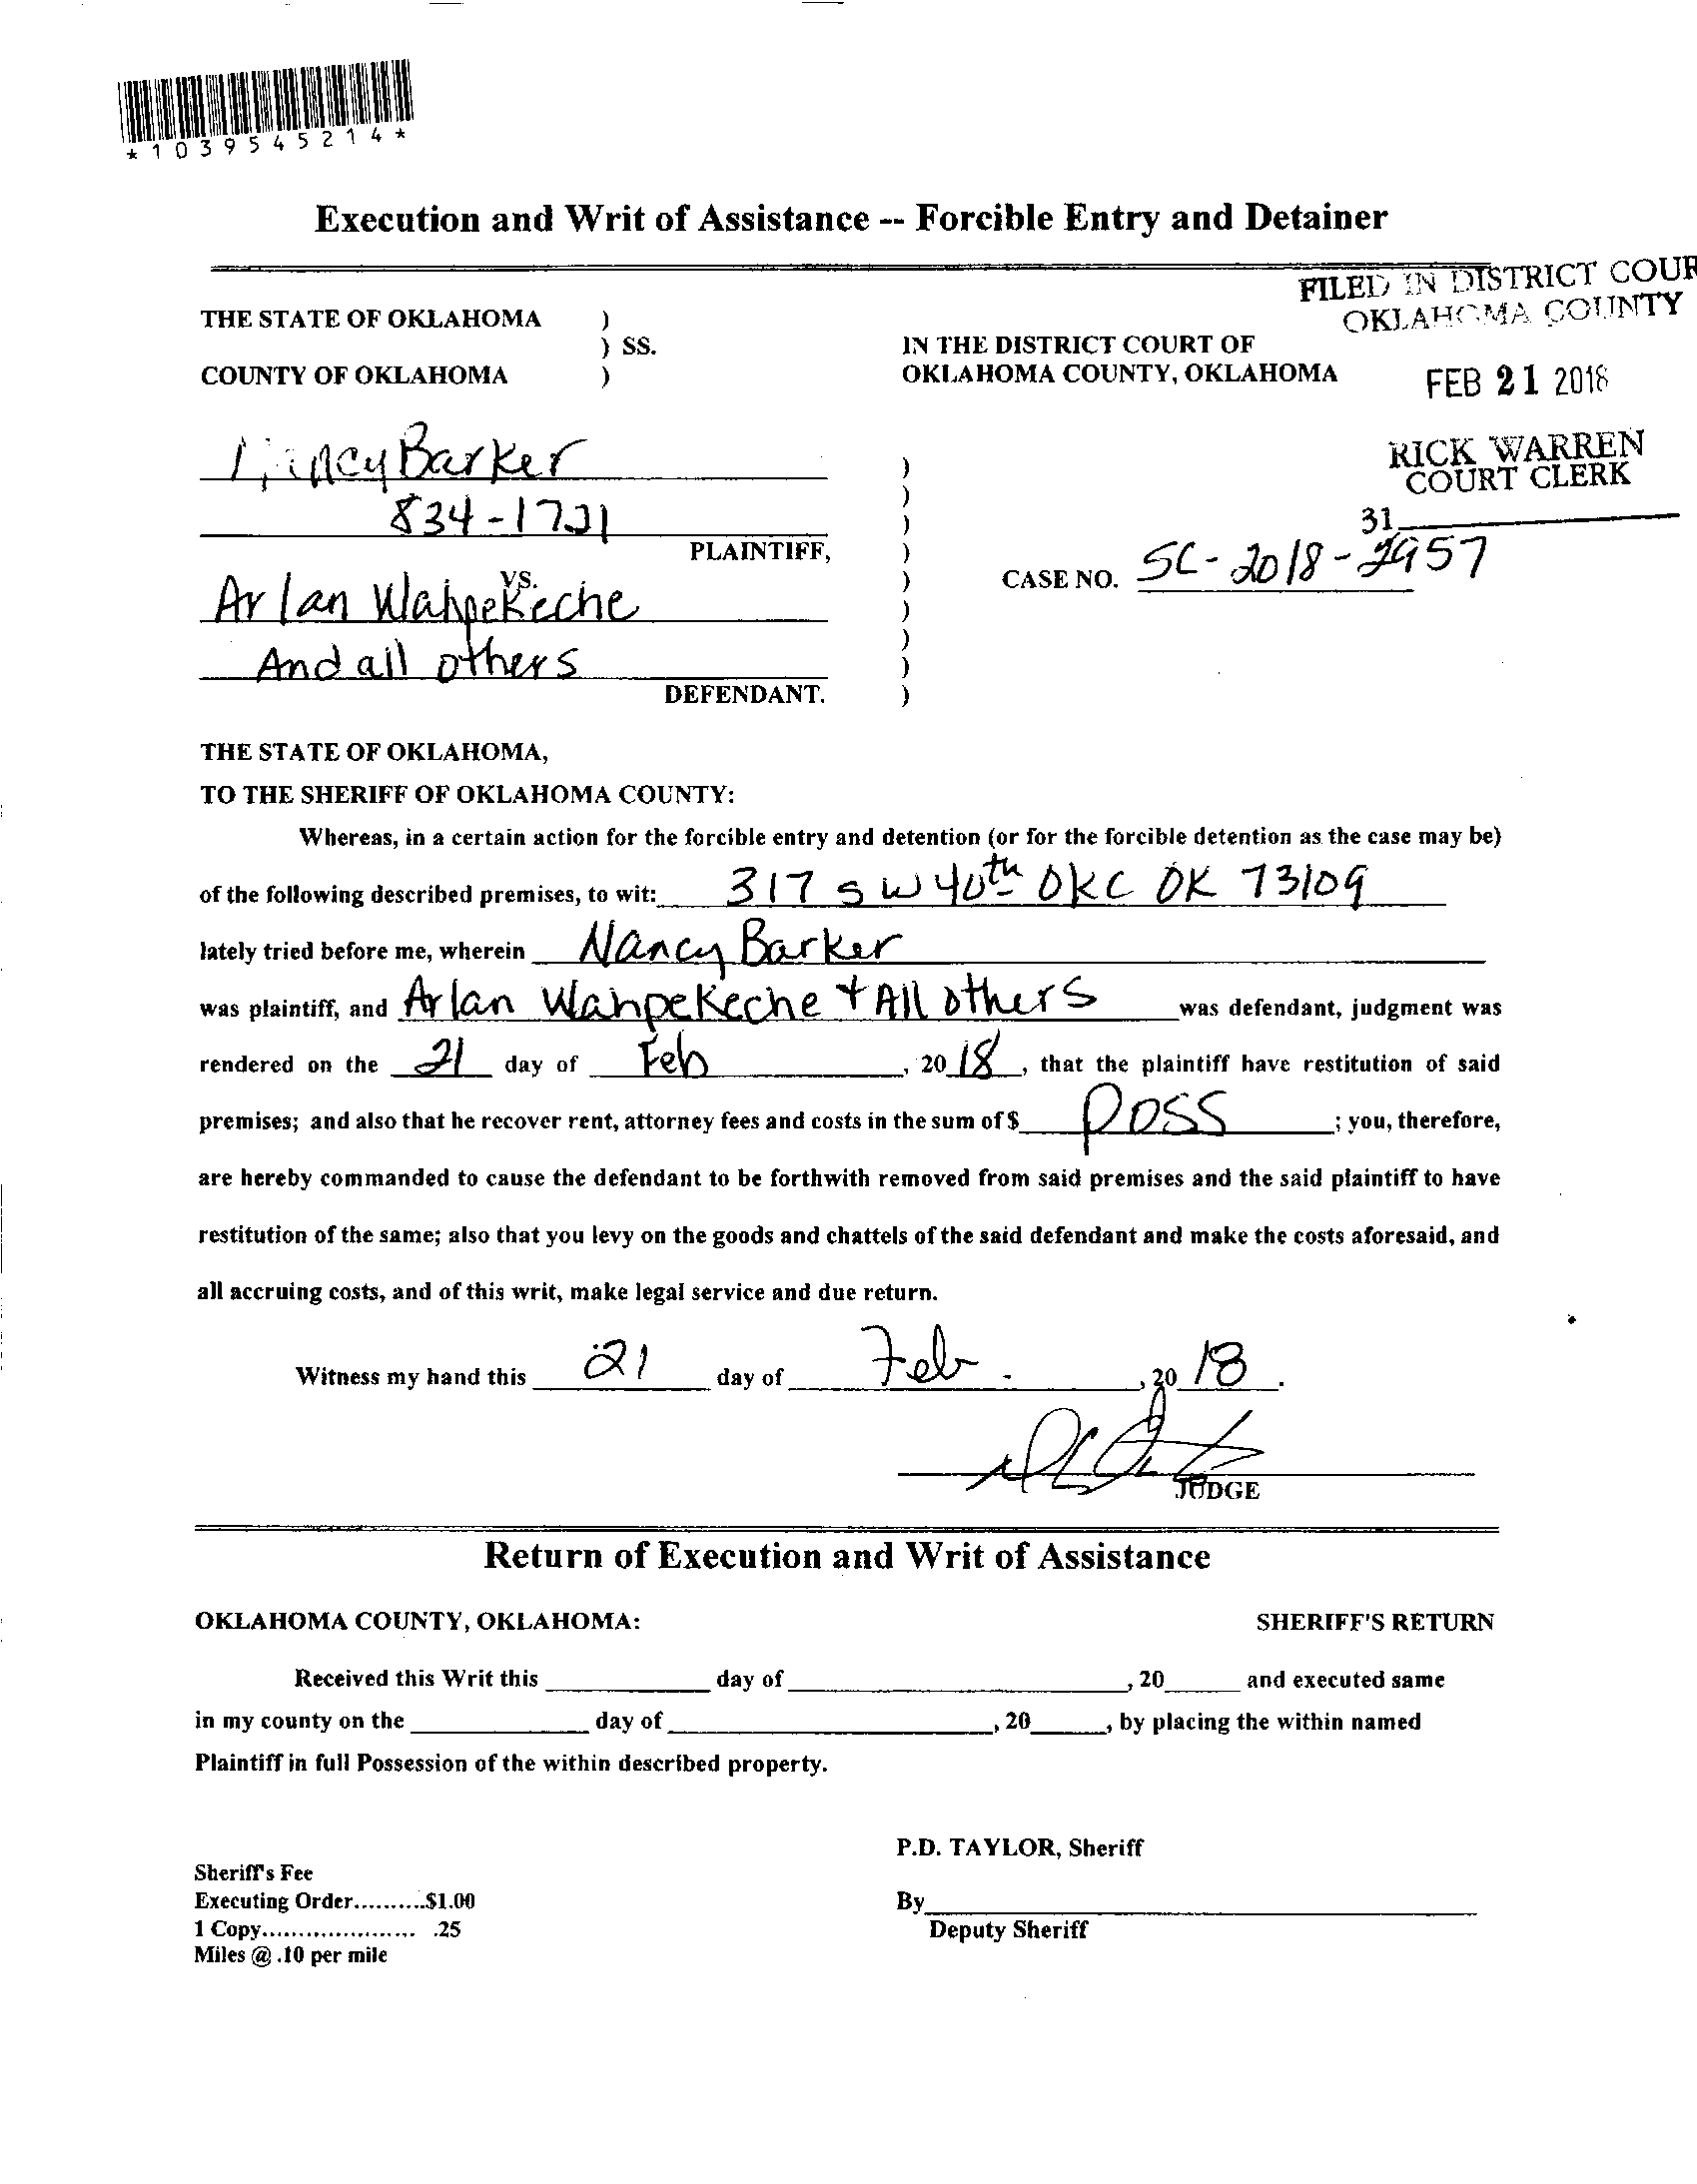 *1039545214*
Execution and Writ of Assistance -- Forcible Entry and Detainer
FILED IN DISTRICT COUR
OKLAHOMA COUNTY
THE STATE OF OKLAHOMA )
) SS.
COUNTY OF OKLAHOMA )
IN THE DISTRICT COURT OF
OKLAHOMA COUNTY, OKLAHOMA
FEB 21 2018
RICK WARREN
COURT CLERK
31
Nancy Barker )
834-1721 )
PLAINTIFF, )
VS. )
CASE NO. SC-2018-2957
Arlan Wahpekeche )
And all others )
DEFENDANT. )
THE STATE OF OKLAHOMA,
TO THE SHERIFF OF OKLAHOMA COUNTY:
Whereas, in a certain action for the forcible entry and detention (or for the forcible detention as the case may be)
of the following described premises, to wit: 317 SW 40th OKC OK 73109
lately tried before me, wherein Nancy Barker
was plaintiff, and Arlan Wahpekeche + All others was defendant, judgment was
rendered on the 21 day of Feb, 2018, that the plaintiff have restitution of said
premises; and also that he recover rent, attorney fees and costs in the sum of $ POSS; you, therefore,
are hereby commanded to cause the defendant to be forthwith removed from said premises and the said plaintiff to have
restitution of the same; also that you levy on the goods and chattels of the said defendant and make the costs aforesaid, and
all accruing costs, and of this writ, make legal service and due return.
Witness my hand this 21 day of Feb., 2018.
JUDGE
Return of Execution and Writ of Assistance
OKLAHOMA COUNTY, OKLAHOMA: SHERIFF'S RETURN
Received this Writ this ____ day of ____, 20____ and executed same
in my county on the ____ day of ____, 20____, by placing the within named
Plaintiff in full Possession of the within described property.
P.D. TAYLOR, Sheriff
Sheriff's Fee
Executing Order..........$1.00
By____
1 Copy..................... .25
Deputy Sheriff
Miles @ .10 per mile